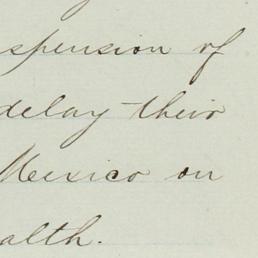 spension of
delay their
Mexico on
alth.